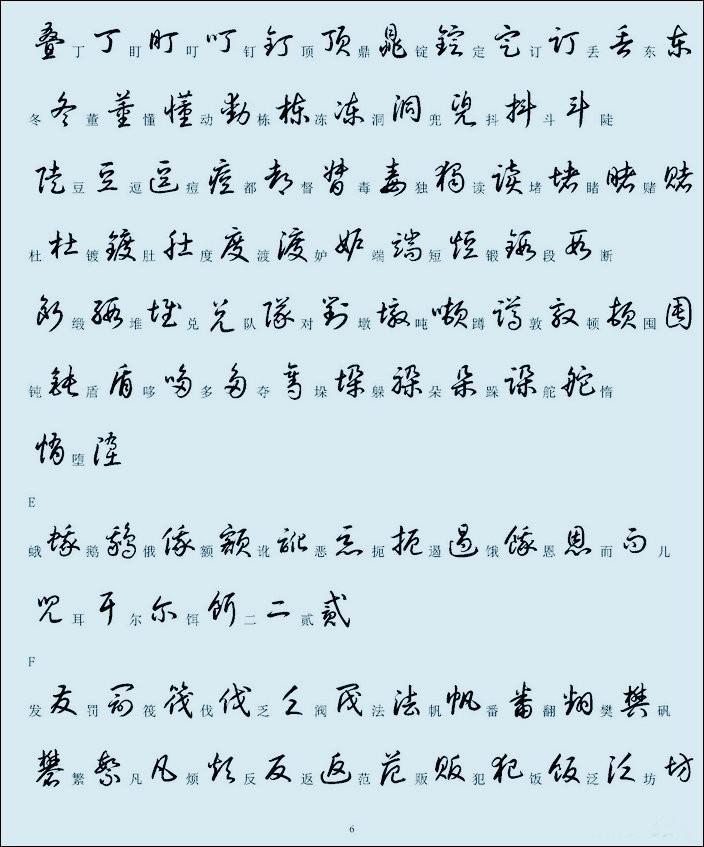 叠 丁 丁 盯 盯 叮 叮 钉 钉 顶 顶 鼎 鼎 锭 锭 定 定 订 订 丢 丢 东 东
冬 冬 董 董 懂 懂 动 动 栋 栋 冻 冻 洞 洞 兜 兜 抖 抖 斗 斗 陡
陡 豆 豆 逗 逗 痘 痘 都 都 督 督 毒 毒 独 独 读 读 堵 堵 睹 睹 赌 赌
杜 杜 镀 镀 肚 肚 度 度 渡 渡 妒 妒 端 端 短 短 锻 锻 段 段 断
断 缎 缎 堆 堆 兑 兑 队 隊 对 對 墩 墩 吨 吨 蹲 蹲 敦 敦 顿 顿 囤 囤
钝 钝 盾 盾 哆 哆 多 多 夺 夺 垛 垛 躲 躲 朵 朵 跺 跺 舵 舵 惰
惰 堕 堕
E
蛾 蛾 鹅 鹅 俄 俄 额 额 讹 讹 恶 恶 扼 扼 遏 遏 饿 饿 恩 恩 而 而 儿
兒 耳 耳 尔 尔 饵 饵 二 二 贰 贰
F
发 发 罚 罚 筏 筏 伐 伐 乏 乏 阀 阀 法 法 帆 帆 番 番 翻 翻 樊 樊 矾
矾 繁 繁 凡 凡 烦 烦 反 反 返 返 范 范 贩 贩 犯 犯 饭 饭 泛 泛 坊 坊
6